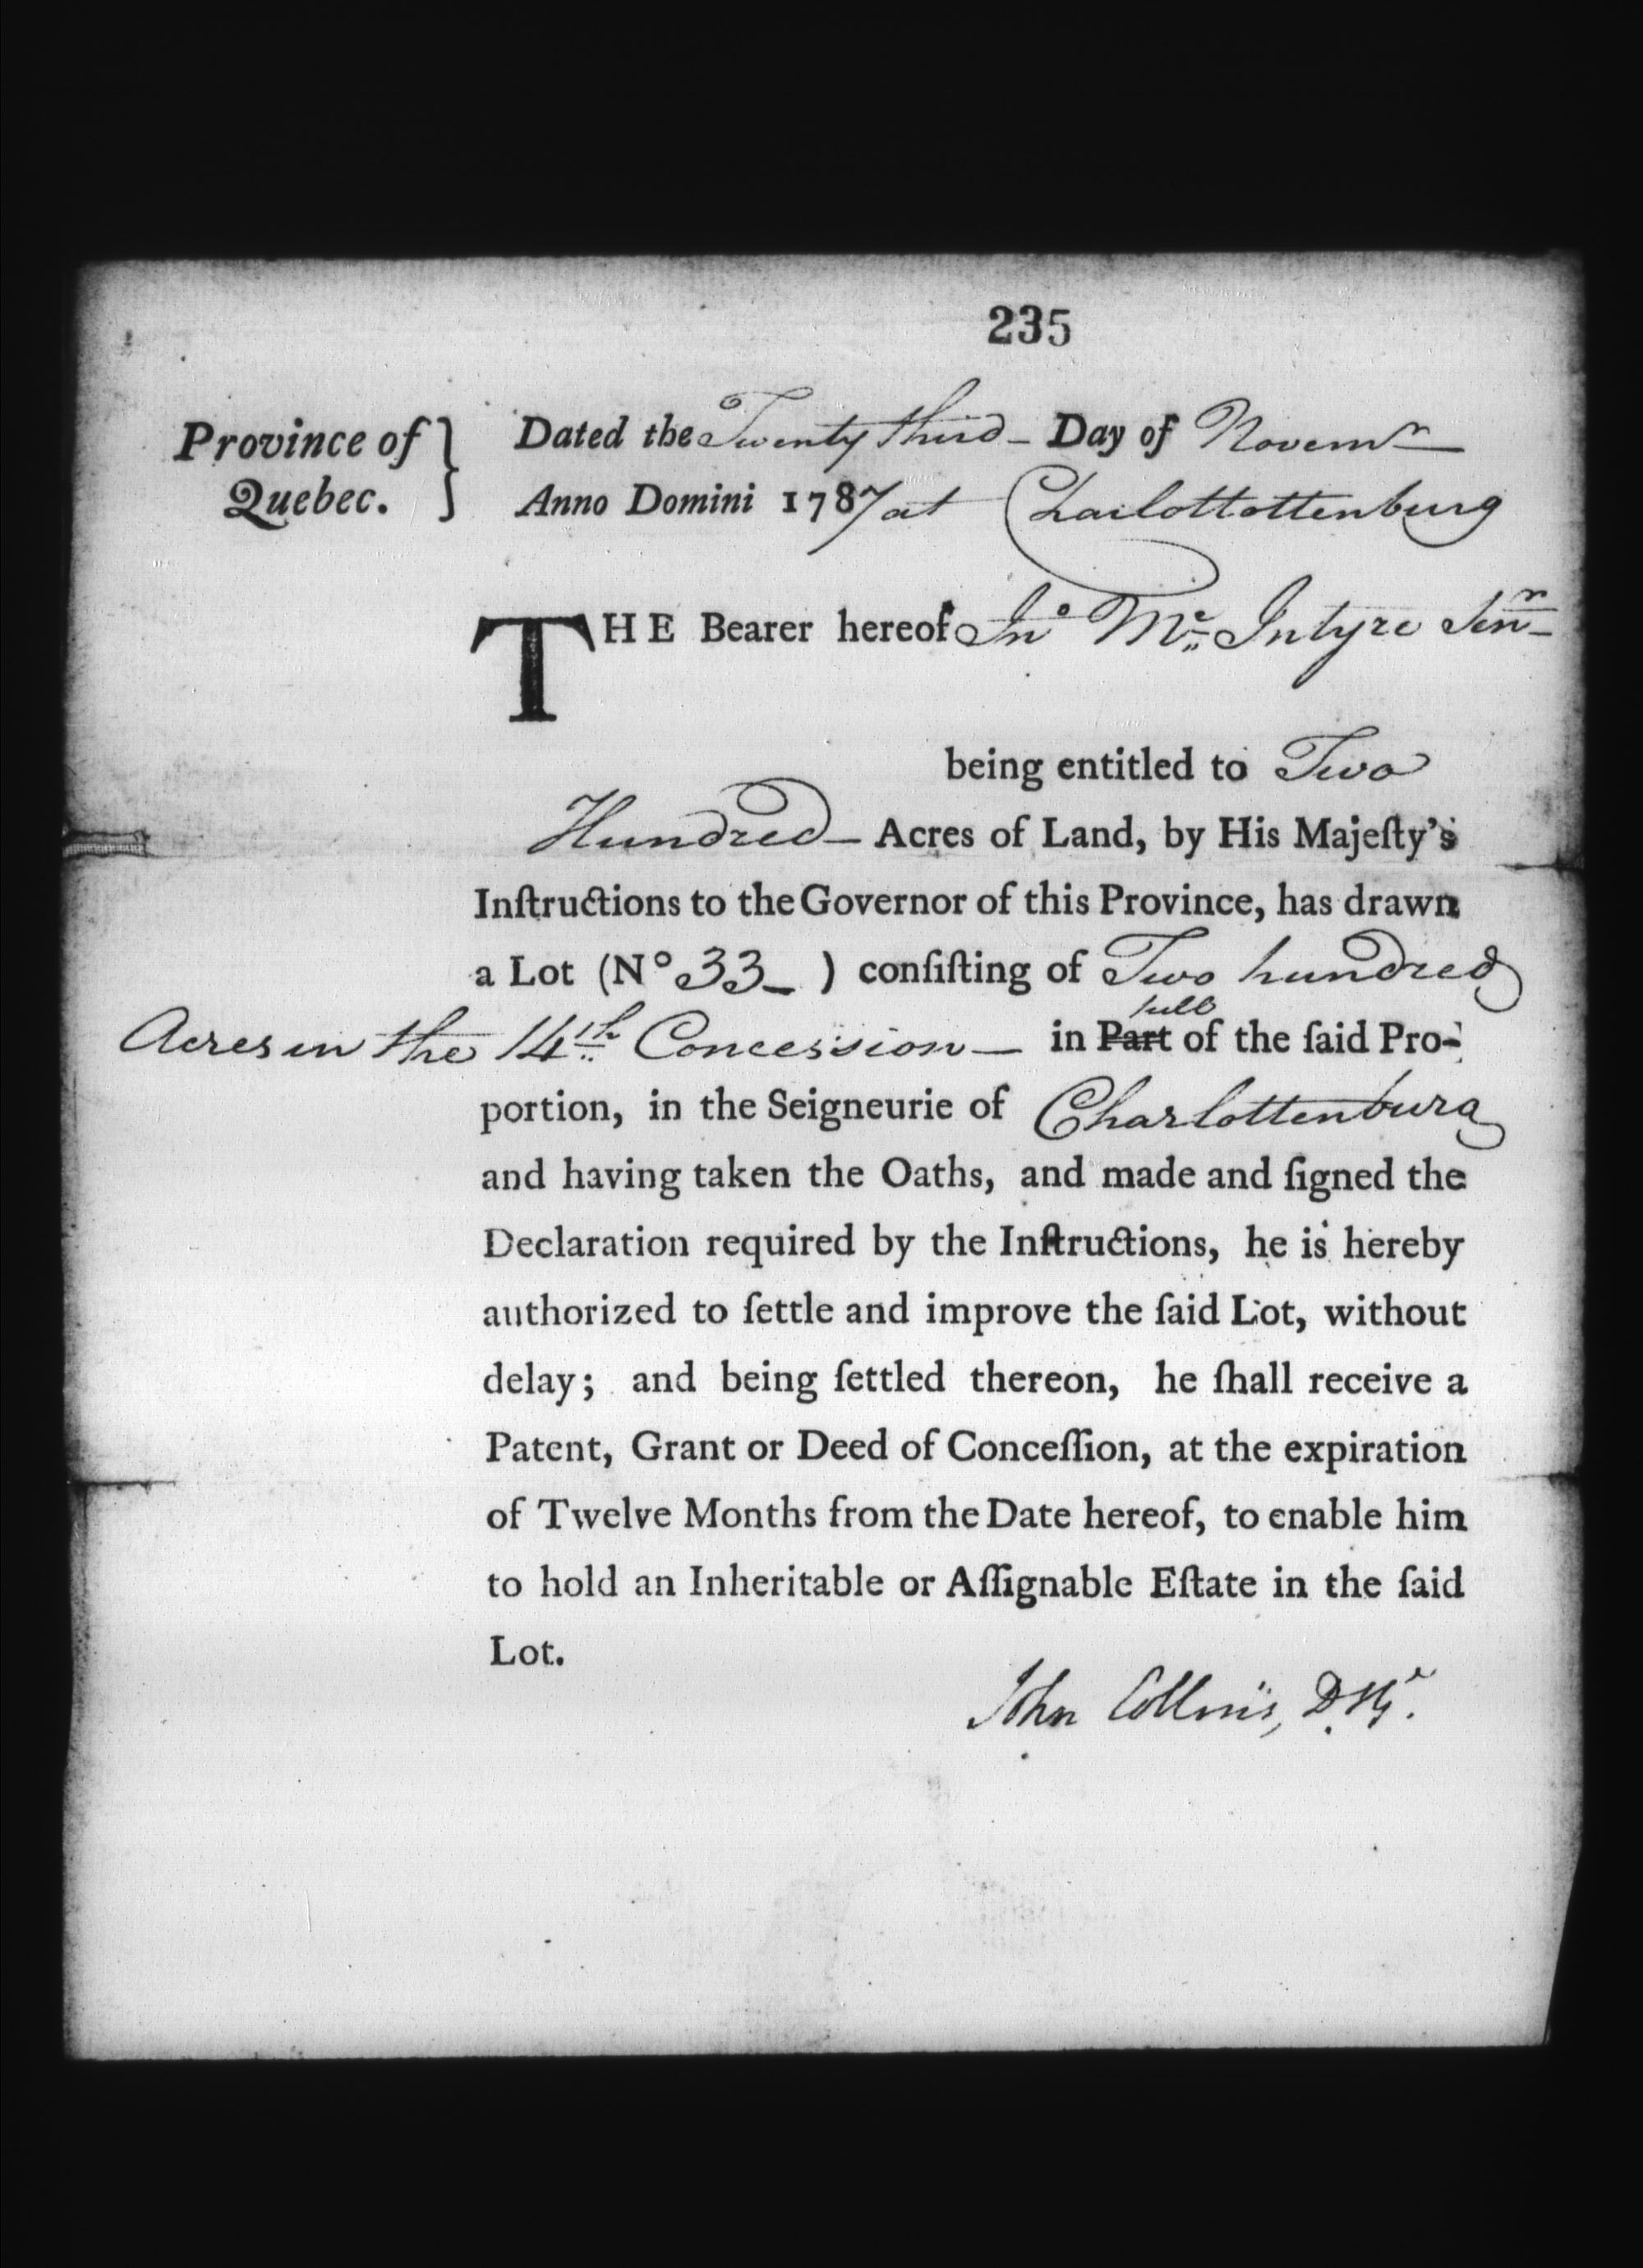 235
Province of Quebec. } Dated the Twenty third – Day of Novemr
Anno Domini 1787 at Charlottottenburg
THE Bearer hereof Jno Mc Intyre Senr
being entitled to Two
Hundred – Acres of Land, by His Majeſty's
Inſtructions to the Governor of this Province, has drawn
a Lot (No 33 – ) conſiſting of Two hundred
full
Acres in the 14th Concession – in Part of the ſaid Pro-
portion, in the Seigneurie of Charlottenburg
and having taken the Oaths, and made and ſigned the
Declaration required by the Inſtructions, he is hereby
authorized to ſettle and improve the ſaid Lot, without
delay; and being ſettled thereon, he ſhall receive a
Patent, Grant or Deed of Conceſſion, at the expiration
of Twelve Months from the Date hereof, to enable him
to hold an Inheritable or Aſſignable Eſtate in the ſaid
Lot.
John Collins, D.